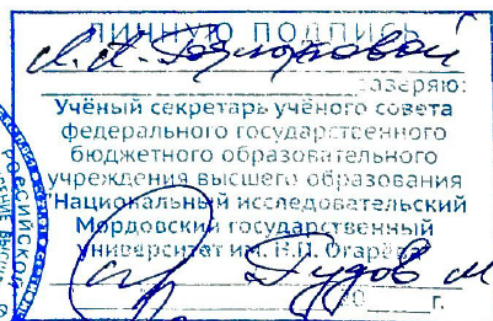 ЛИЧНУЮ ПОДПИСЬ
заверяю:
Учёный секретарь учёного совета
федерального государственного
бюджетного образовательного
учреждения высшего образования
"Национальный исследовательский
Мордовский государственный
университет им. Н.П. Огарёва
Гудов М
20 г.
РОССИЙСКОЙ